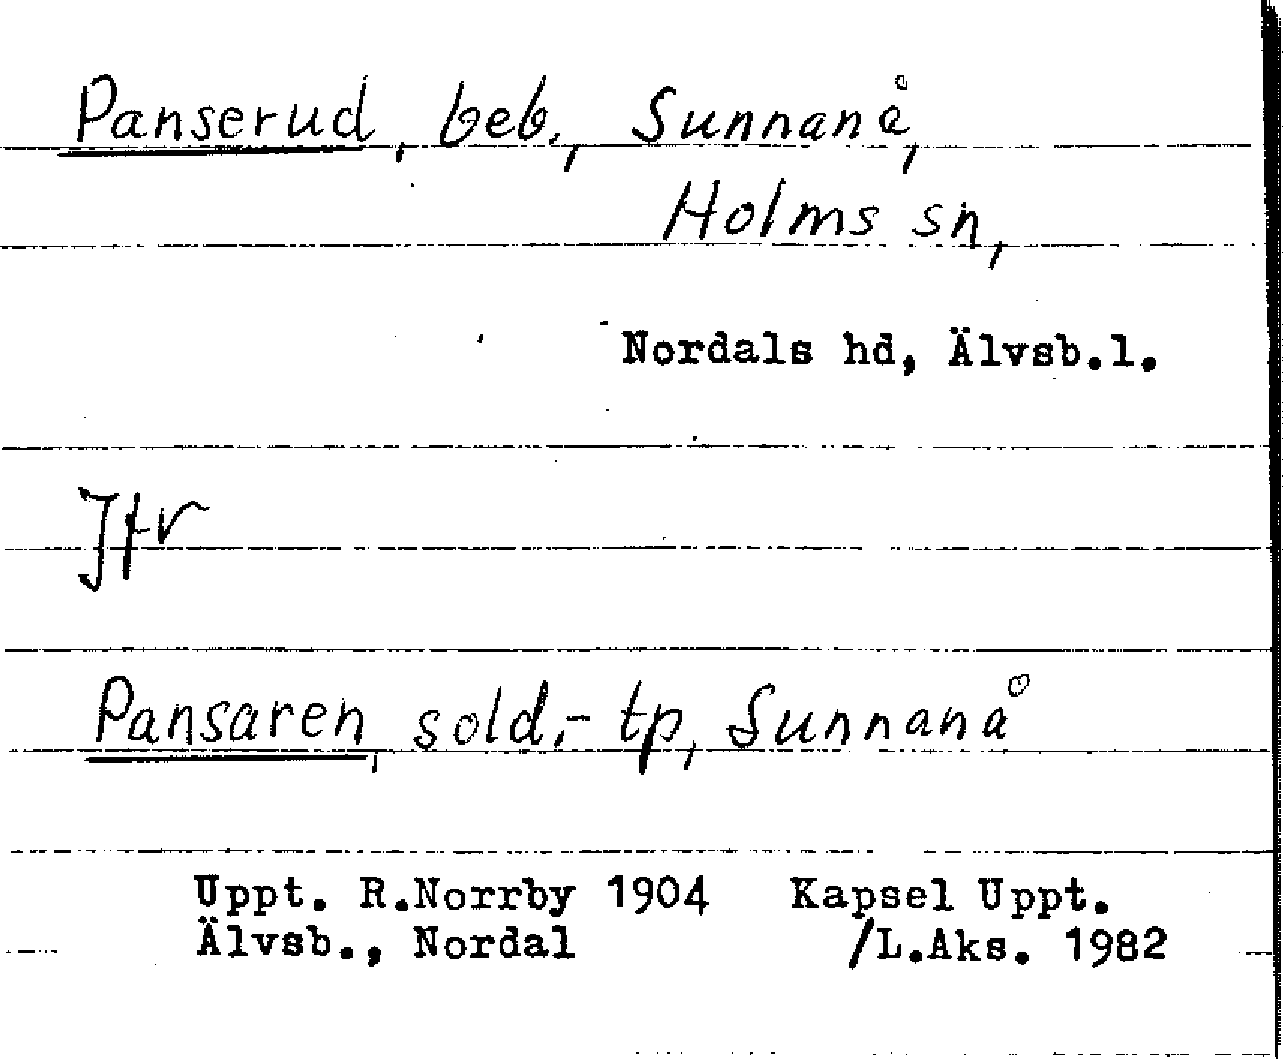 Panserud, beb., Sunnanå,
Holms sn,
Nordals hd, Älvsb.l.
Jfr
Pansaren, sold.-tp, Sunnanå
Uppt. R.Norrby 1904 Kapsel Uppt.
Älvsb., Nordal /L.Aks. 1982